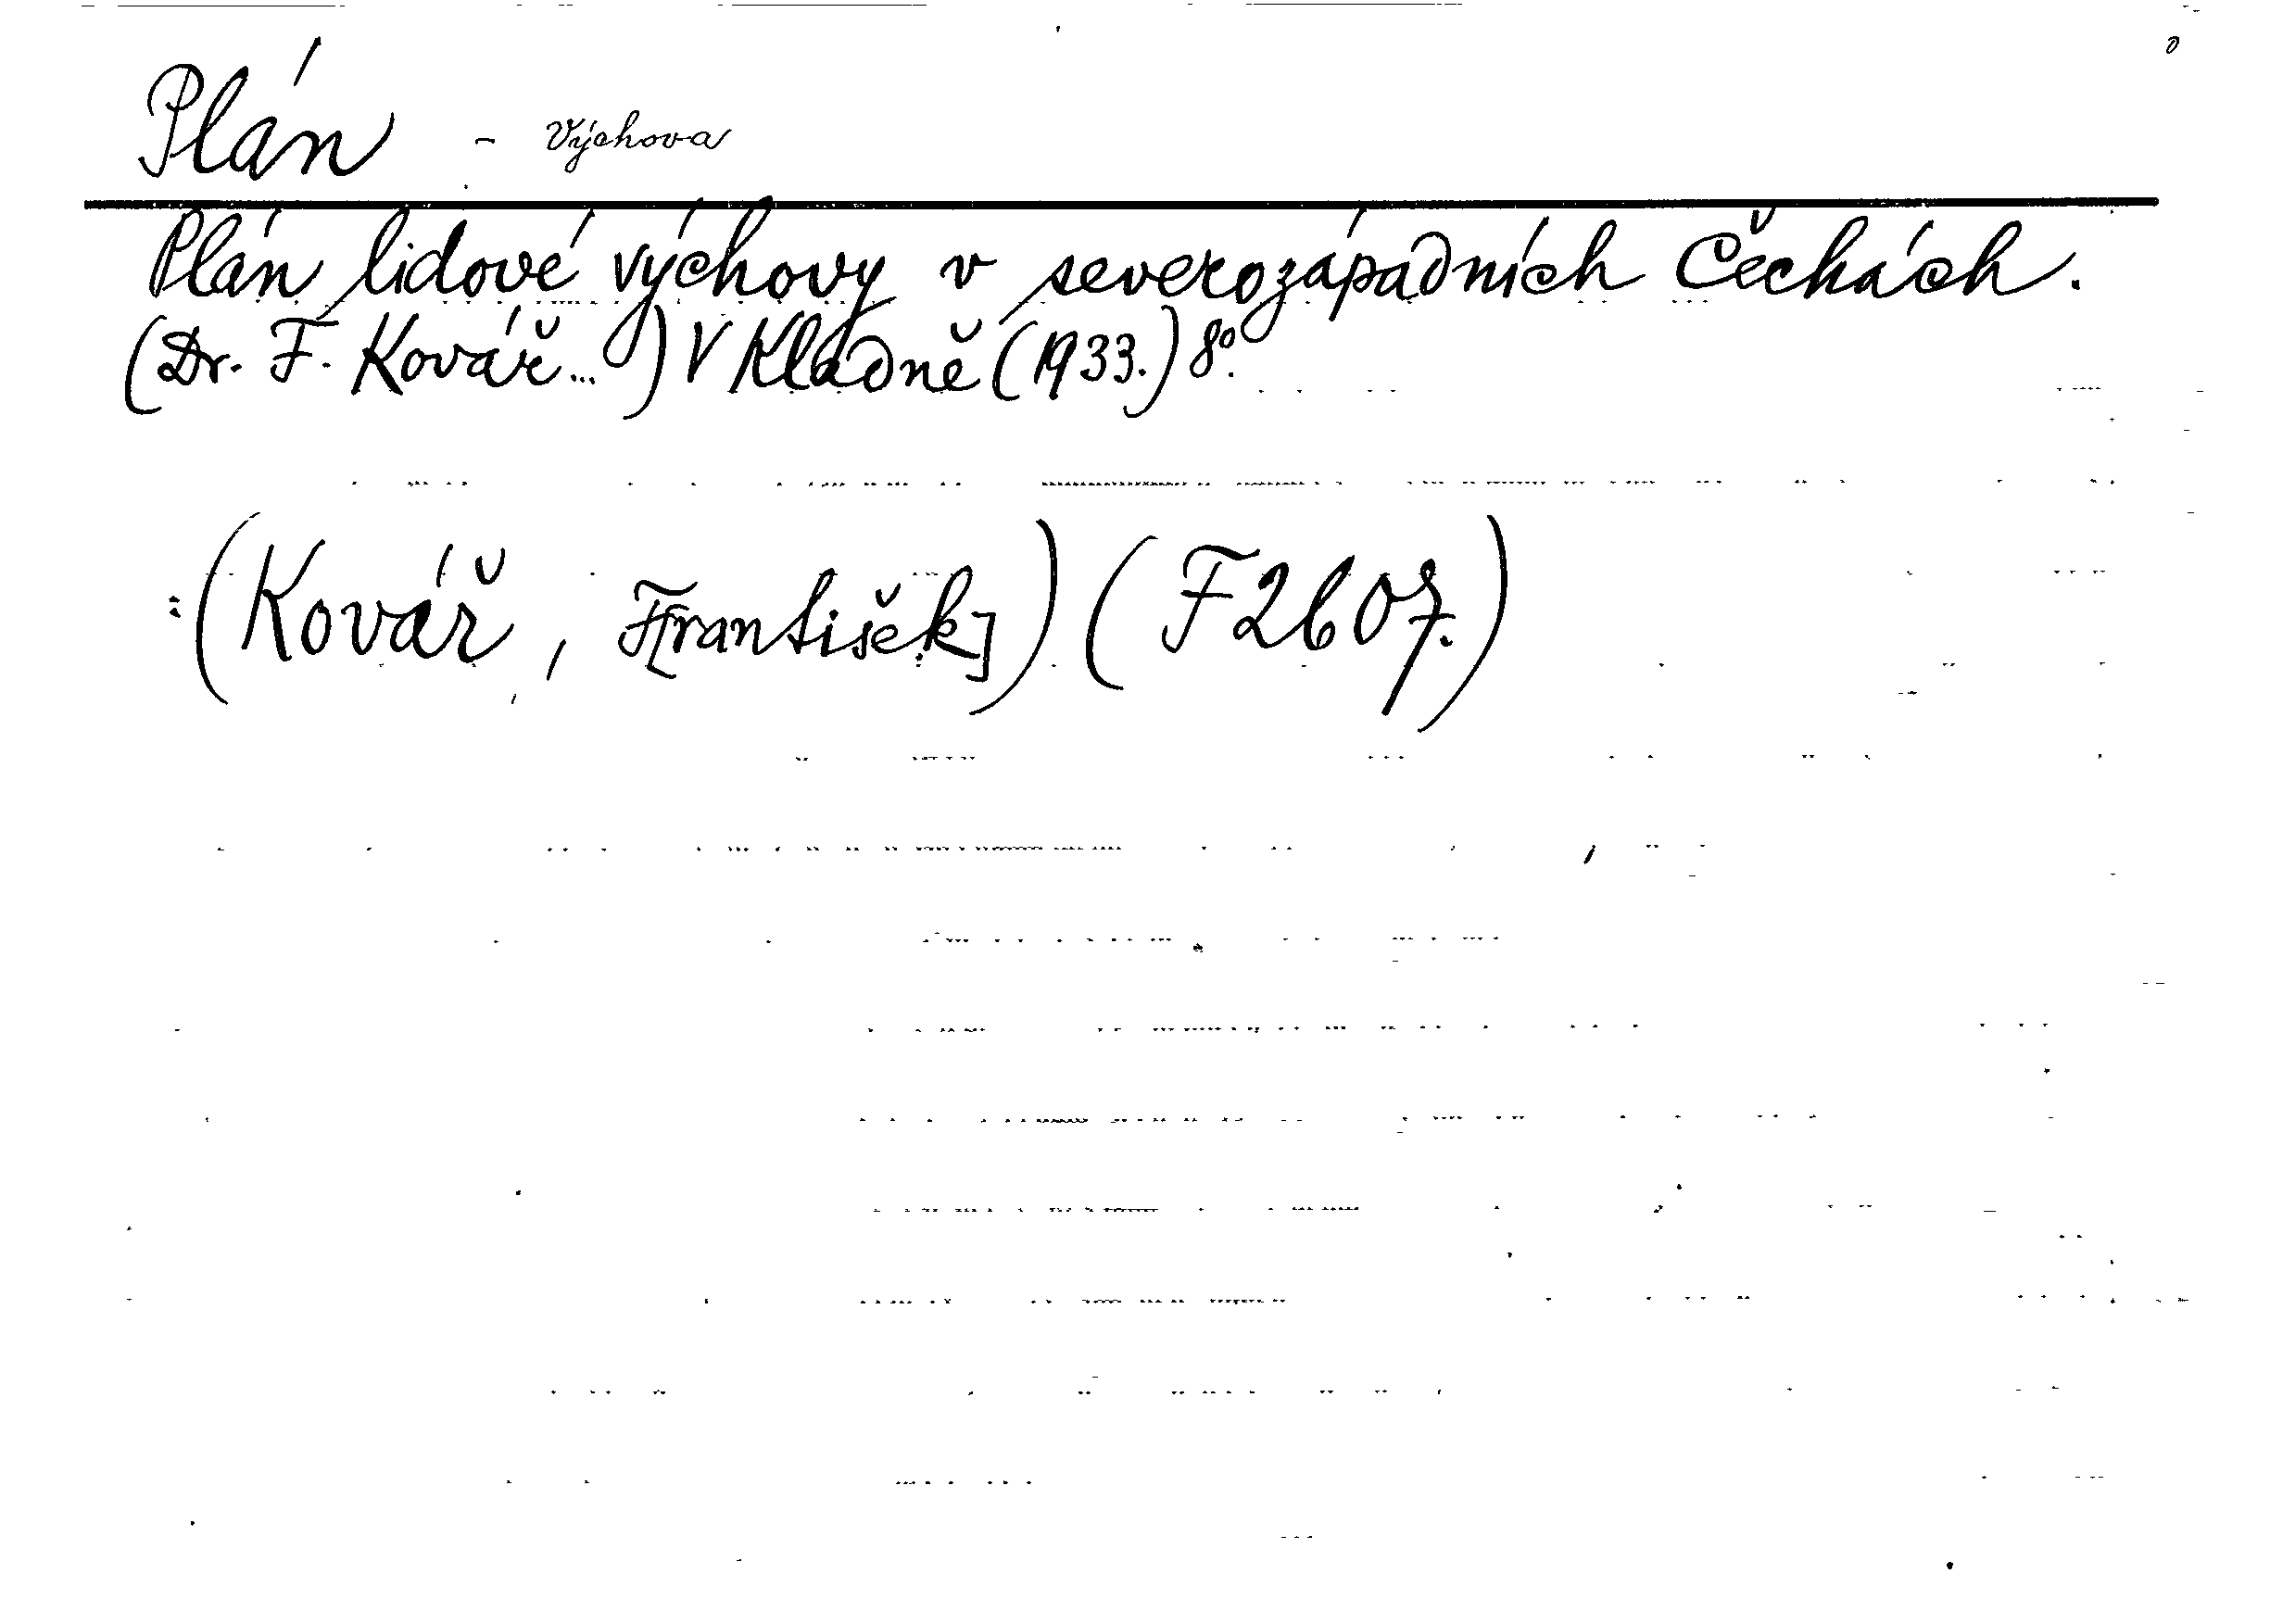 Plán - Výchova
Plán lidové výchovy v severozápadních Čechách.
(Dr. F. Kovář...) V Kladně (1933.) 8º.
:(Kovář, F[rantišek]) (F 2607.)